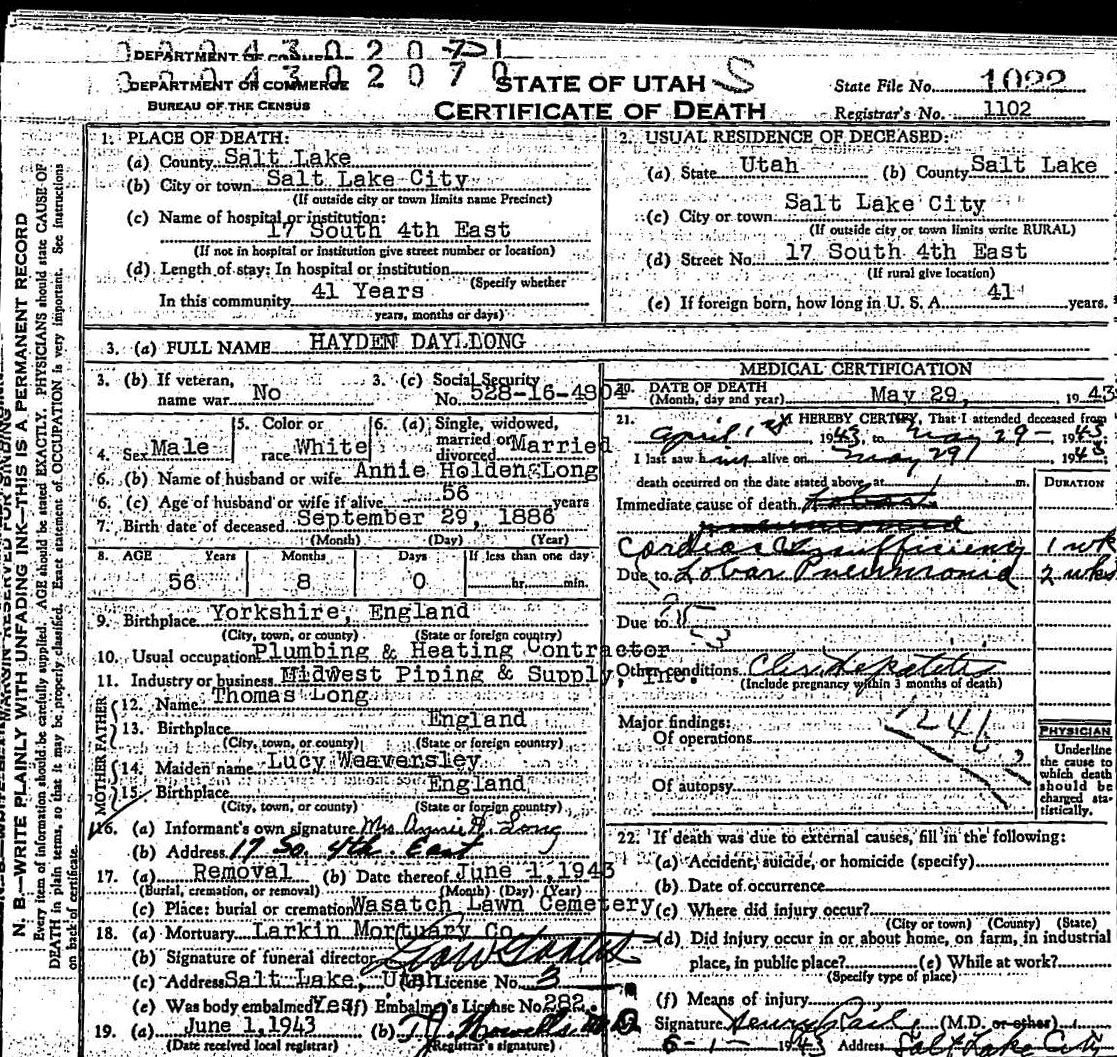 DEPARTMENT OF COMMERCE
0 0 0 4 3 0 2 0 7 0
DEPARTMENT OF COMMERCE
BUREAU OF THE CENSUS
STATE OF UTAH
CERTIFICATE OF DEATH
State File No. 1022
Registrar's No. 1102
N. B.—WRITE PLAINLY WITH UNFADING INK—THIS IS A PERMANENT RECORD
Every item of information should be carefully supplied. AGE should be stated EXACTLY. PHYSICIANS should state CAUSE OF
DEATH in plain terms, so that it may be properly classified. Exact statement of OCCUPATION is very important. See instructions
on back of certificate.
1. PLACE OF DEATH:
(a) County Salt Lake
(b) City or town Salt Lake City
(If outside city or town limits name Precinct)
(c) Name of hospital or institution:
17 South 4th East
(If not in hospital or institution give street number or location)
(d) Length of stay: In hospital or institution
(Specify whether
In this community 41 Years
years, months or days)
2. USUAL RESIDENCE OF DECEASED:
(a) State Utah (b) County Salt Lake
(c) City or town Salt Lake City
(If outside city or town limits write RURAL)
(d) Street No. 17 South 4th East
(If rural give location)
(e) If foreign born, how long in U. S. A. 41 years.
3. (a) FULL NAME HAYDEN DAY LONG
3. (b) If veteran, name war No
3. (c) Social Security No. 528-16-4804
4. Sex Male
5. Color or race White
6. (a) Single, widowed, married or divorced Married
6. (b) Name of husband or wife Annie Holden Long
6. (c) Age of husband or wife if alive 56 years
7. Birth date of deceased September 29, 1886
(Month) (Day) (Year)
8. AGE Years Months Days If less than one day
56 8 0 hr. min.
9. Birthplace Yorkshire, England
(City, town, or county) (State or foreign country)
10. Usual occupation Plumbing & Heating Contractor
11. Industry or business Midwest Piping & Supply, Inc.
FATHER
12. Name Thomas Long
13. Birthplace England
(City, town, or county) (State or foreign country)
MOTHER
14. Maiden name Lucy Weaversley
15. Birthplace England
(City, town, or county) (State or foreign country)
16. (a) Informant's own signature Mrs Annie H. Long
(b) Address 17 So. 4th East
17. (a) Removal (b) Date thereof June 1, 1943
(Burial, cremation, or removal) (Month) (Day) (Year)
(c) Place: burial or cremation Wasatch Lawn Cemetery
18. (a) Mortuary Larkin Mortuary Co.
(b) Signature of funeral director
(c) Address Salt Lake, Utah (d) License No. 3
(e) Was body embalmed Yes (f) Embalmer's License No. 282.
19. (a) June 1, 1943 (b) T. J. Howells M.D.
(Date received local registrar) (Registrar's signature)
MEDICAL CERTIFICATION
20. DATE OF DEATH
(Month, day and year) May 29, 1943
21. I HEREBY CERTIFY, That I attended deceased from
April 1st 1943, to May 29- 1943
I last saw him alive on May 29 1943
death occurred on the date stated above, at m.
DURATION
Immediate cause of death Lobar
pneumonia
Cardiac Insufficiency 1 wk
Due to Lobar Pneumonia 2 wks
Due to
Other conditions
(Include pregnancy within 3 months of death)
Major findings:
Of operations
Of autopsy
PHYSICIAN
Underline
the cause to
which death
should be
charged sta-
tistically.
22. If death was due to external causes, fill in the following:
(a) Accident, suicide, or homicide (specify)
(b) Date of occurrence
(c) Where did injury occur?
(City or town) (County) (State)
(d) Did injury occur in or about home, on farm, in industrial
place, in public place? (e) While at work?
(Specify type of place)
(f) Means of injury
Signature Henry Raile (M.D. or other)
6-1- 1943 Address Salt Lake City